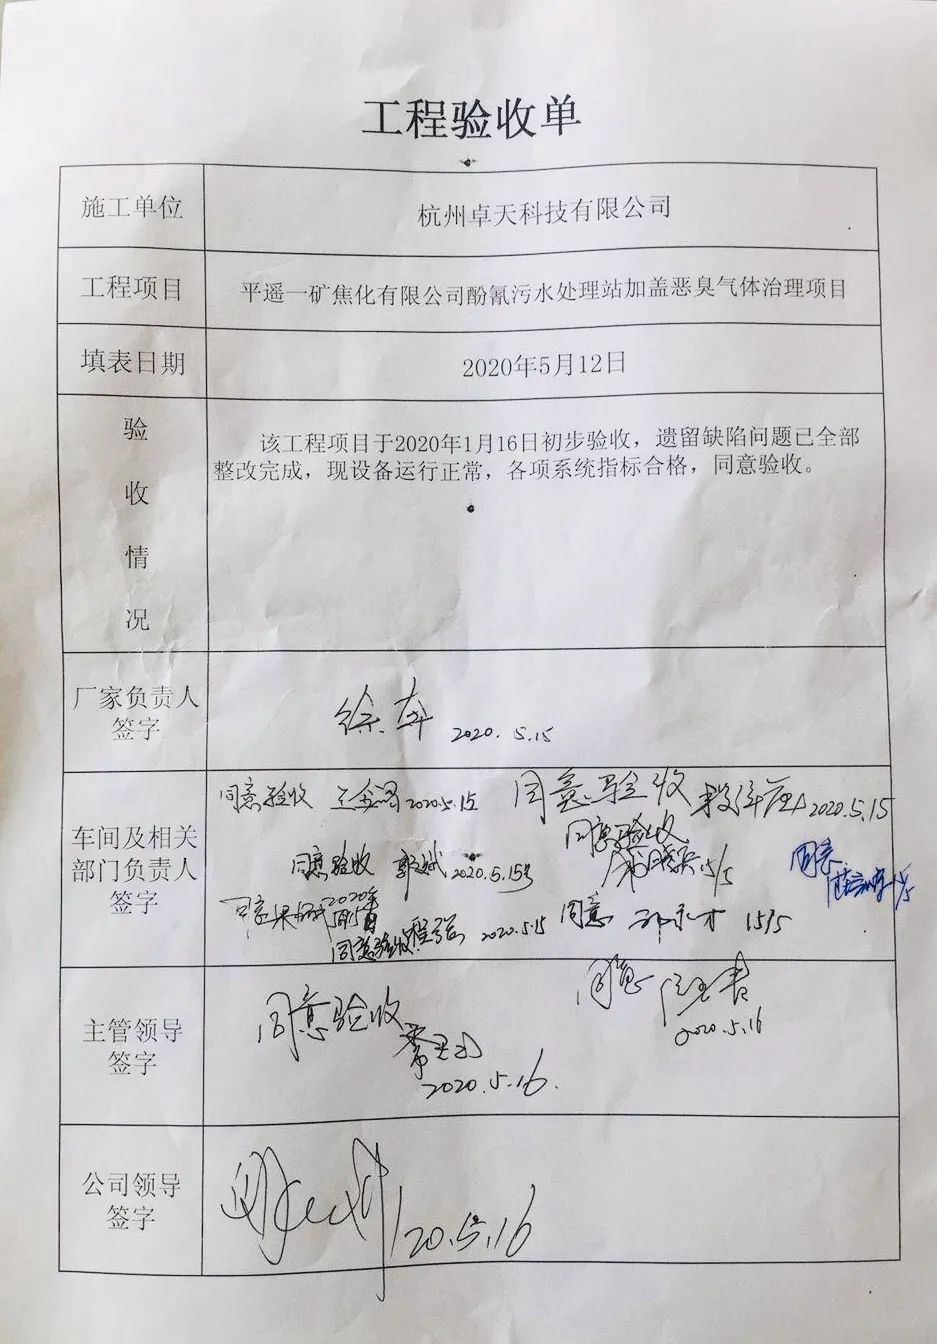 工程验收单
施工单位
杭州卓天科技有限公司
工程项目
平遥一矿焦化有限公司酚氰污水处理站加盖恶臭气体治理项目
填表日期
2020年5月12日
验
收
情
况
该工程项目于2020年1月16日初步验收，遗留缺陷问题已全部
整改完成，现设备运行正常，各项系统指标合格，同意验收。
厂家负责人
签字
2020.5.15
车间及相关
部门负责人
签字
同意验收 2020.5.15
同意验收 2020.5.15
同意验收
同意验收 2020.5.15
同意
同意验收 2020.5.15
同意 15/5
主管领导
签字
同意验收
2020.5.16
同意
2020.5.16
公司领导
签字
20.5.16